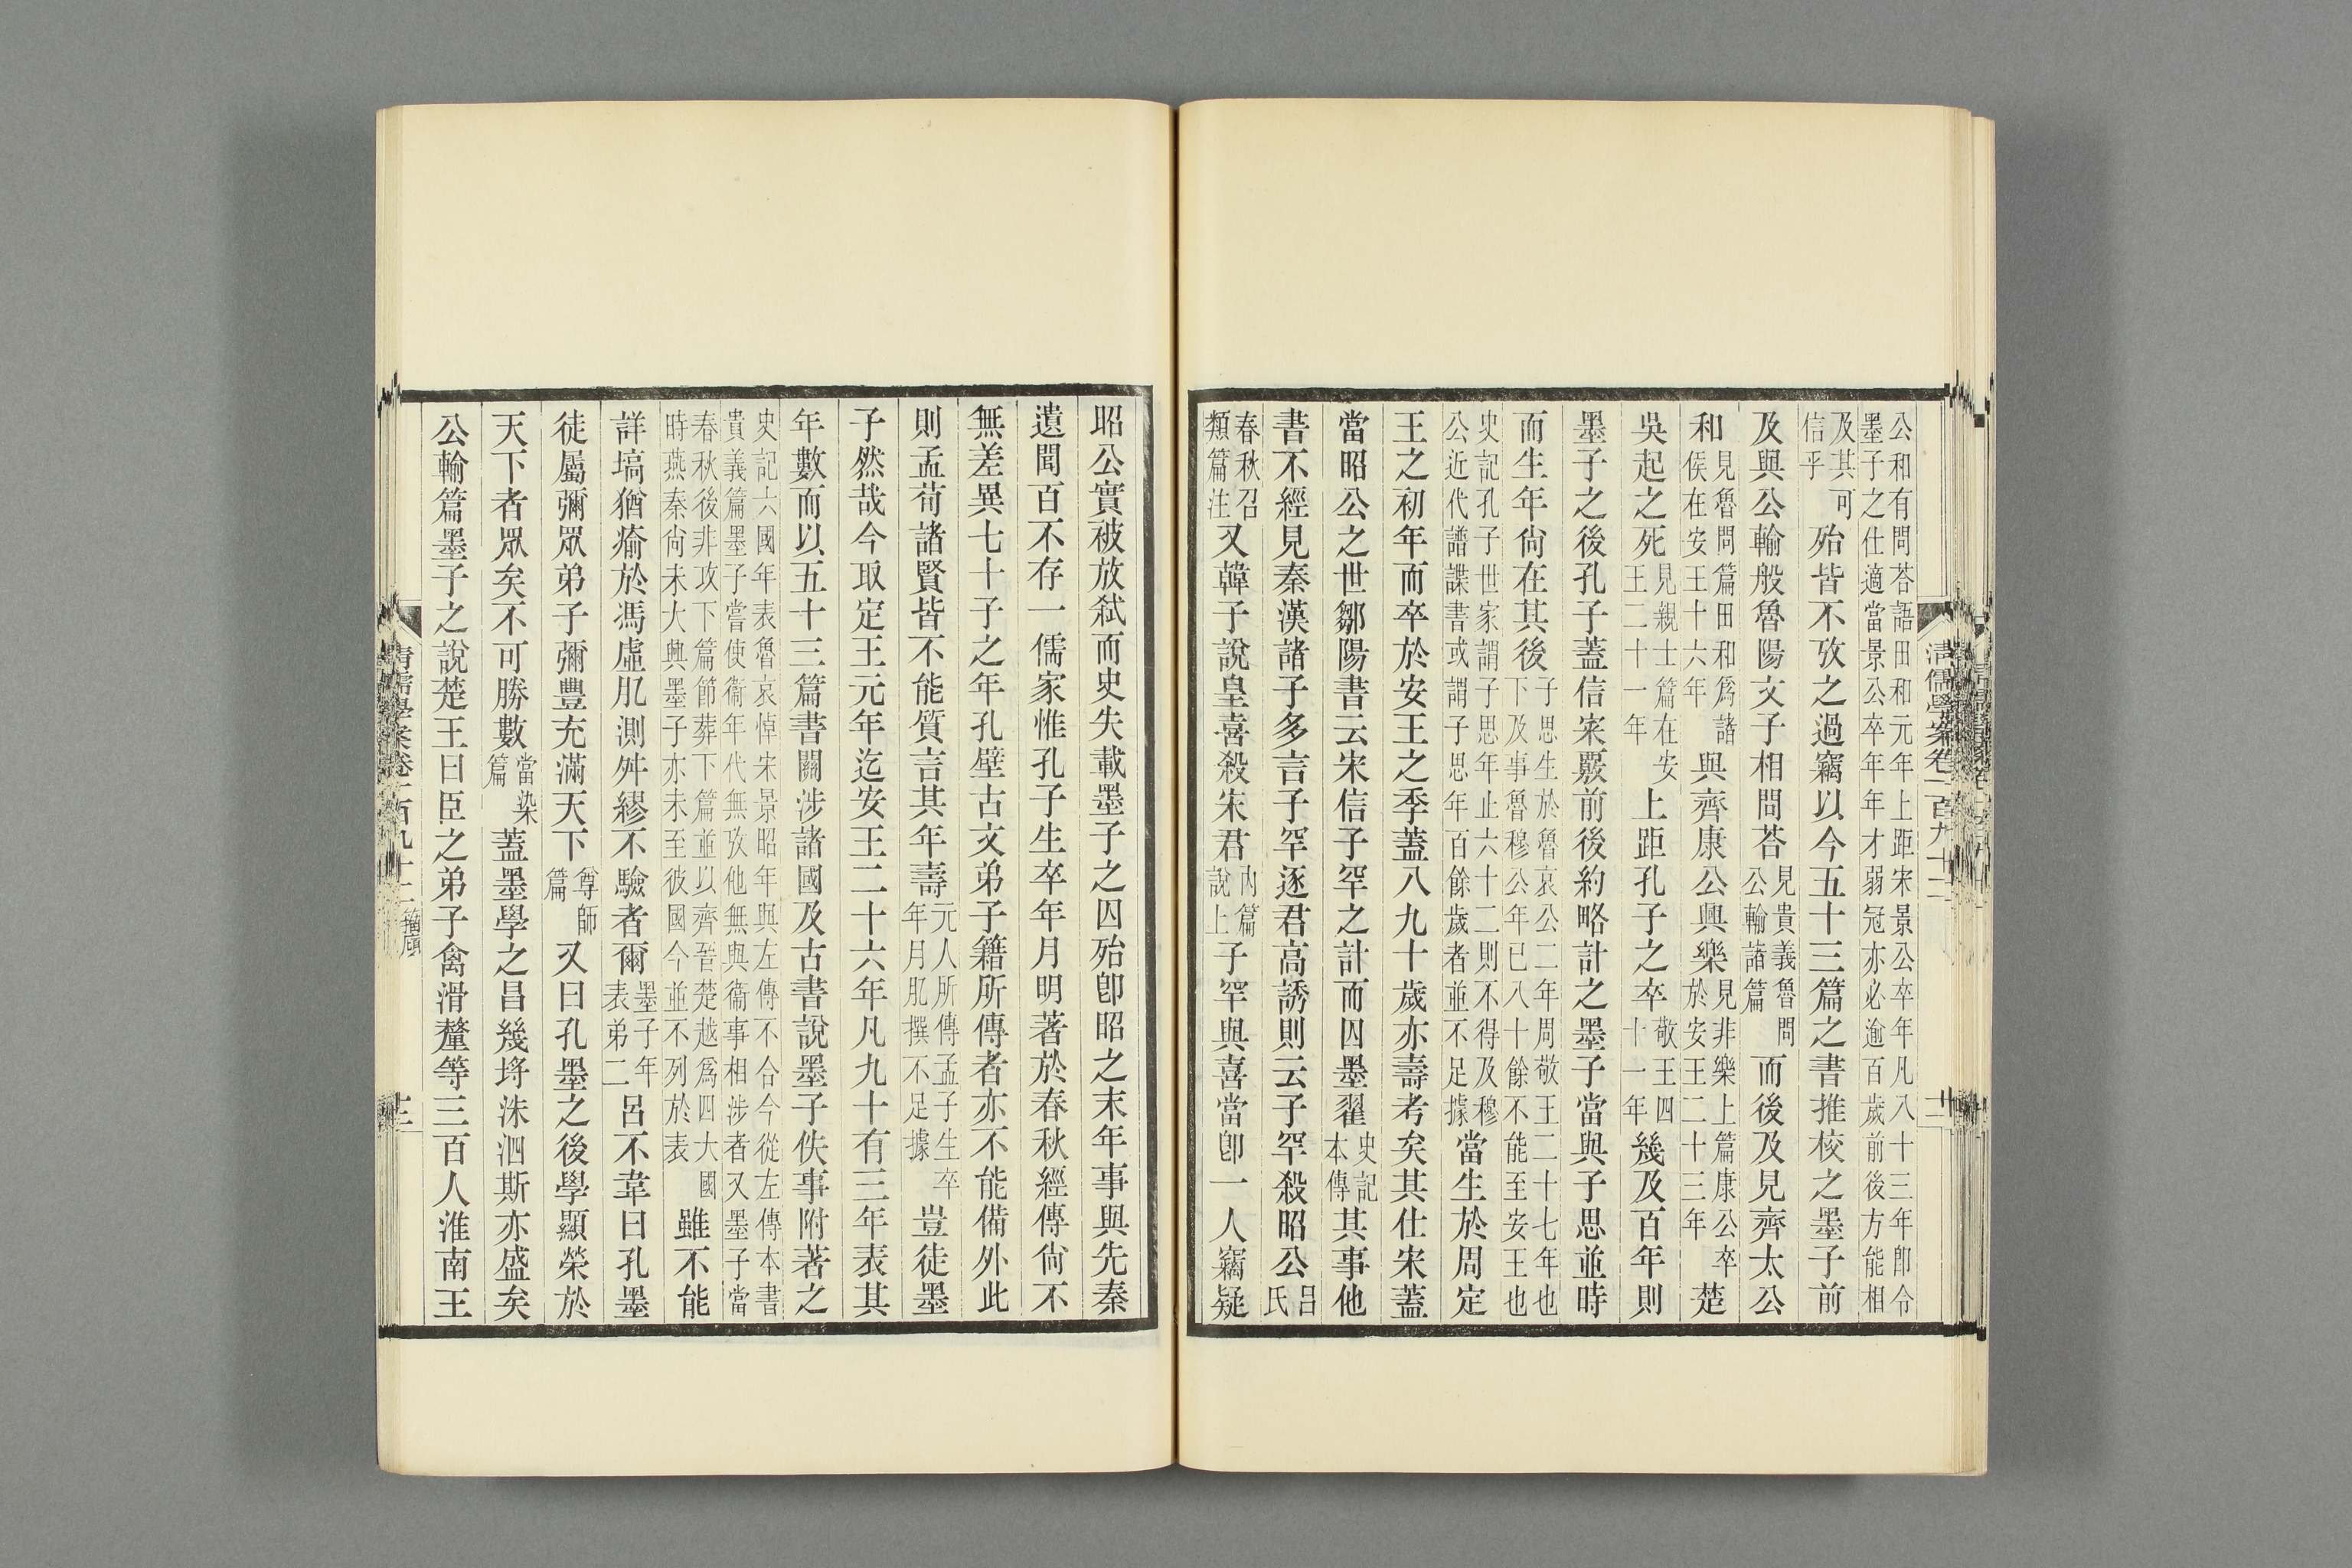 公和有問荅語田和元年上距宋景公卒年凡八十三年卽令
墨子之仕適當景公卒年年才弱冠亦必逾百歲前後方能相
及其可信乎殆皆不攷之過竊以今五十三篇之書推校之墨子前
及與公輸般魯陽文子相問荅見貴義魯問公輸諸篇而後及見齊太公
和見魯問篇田和爲諸侯在安王十六年與齊康公興樂見非樂上篇康公卒於安王二十三年楚
吳起之死見親士篇在安王二十一年上距孔子之卒敬王四十一年幾及百年則
墨子之後孔子蓋信宷覈前後約略計之墨子當與子思並時
而生年尙在其後子思生於魯哀公二年周敬王二十七年也下及事魯穆公年已八十餘不能至安王也
史記孔子世家謂子思年止六十二則不得及穆公近代譜諜書或謂子思年百餘歲者並不足據當生於周定
王之初年而卒於安王之季蓋八九十歲亦壽考矣其仕宋蓋
當昭公之世鄒陽書云宋信子罕之計而囚墨翟史記本傳其事他
書不經見秦漢諸子多言子罕逐君高誘則云子罕殺昭公呂氏
春秋召類篇注又韓子說皇喜殺宋君內篇說上子罕與喜當卽一人竊疑
昭公實被放弒而史失載墨子之囚殆卽昭之末年事與先秦
遺聞百不存一儒家惟孔子生卒年月明著於春秋經傳尙不
無差異七十子之年孔壁古文弟子籍所傳者亦不能備外此
則孟荀諸賢皆不能質言其年壽元人所傳孟子生卒年月肊撰不足據豈徒墨
子然哉今取定王元年迄安王二十六年凡九十有三年表其
年數而以五十三篇書關涉諸國及古書說墨子佚事附著之
史記六國年表魯哀悼宋景昭年與左傳不合今從左傳本書
貴義篇墨子嘗使衞年代無攷他無與衞事相涉者又墨子當
春秋後非攻下篇節葬下篇並以齊晉楚越爲四大國時燕秦尙未大興墨子亦未至彼國今並不列於表雖不能
詳塙猶瘉於馮虛肊測舛繆不驗者爾墨子年表弟二呂不韋曰孔墨
徒屬彌眾弟子彌豐充滿天下尊師篇又曰孔墨之後學顯榮於
天下者眾矣不可勝數當染篇蓋墨學之昌幾埒洙泗斯亦盛矣
公輸篇墨子之說楚王曰臣之弟子禽滑釐等三百人淮南王
清儒學案卷一百九十二 籀廎 十三